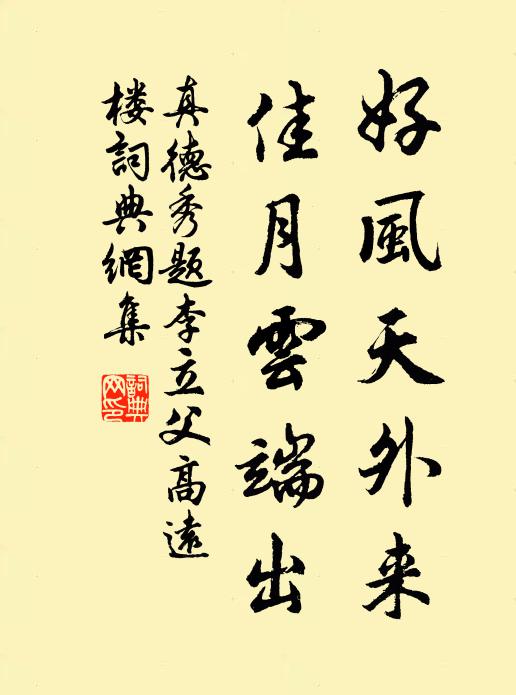 好風天外来
佳月雲端出
真德秀題李立父高遠
楼詞典網集
詞典
网印